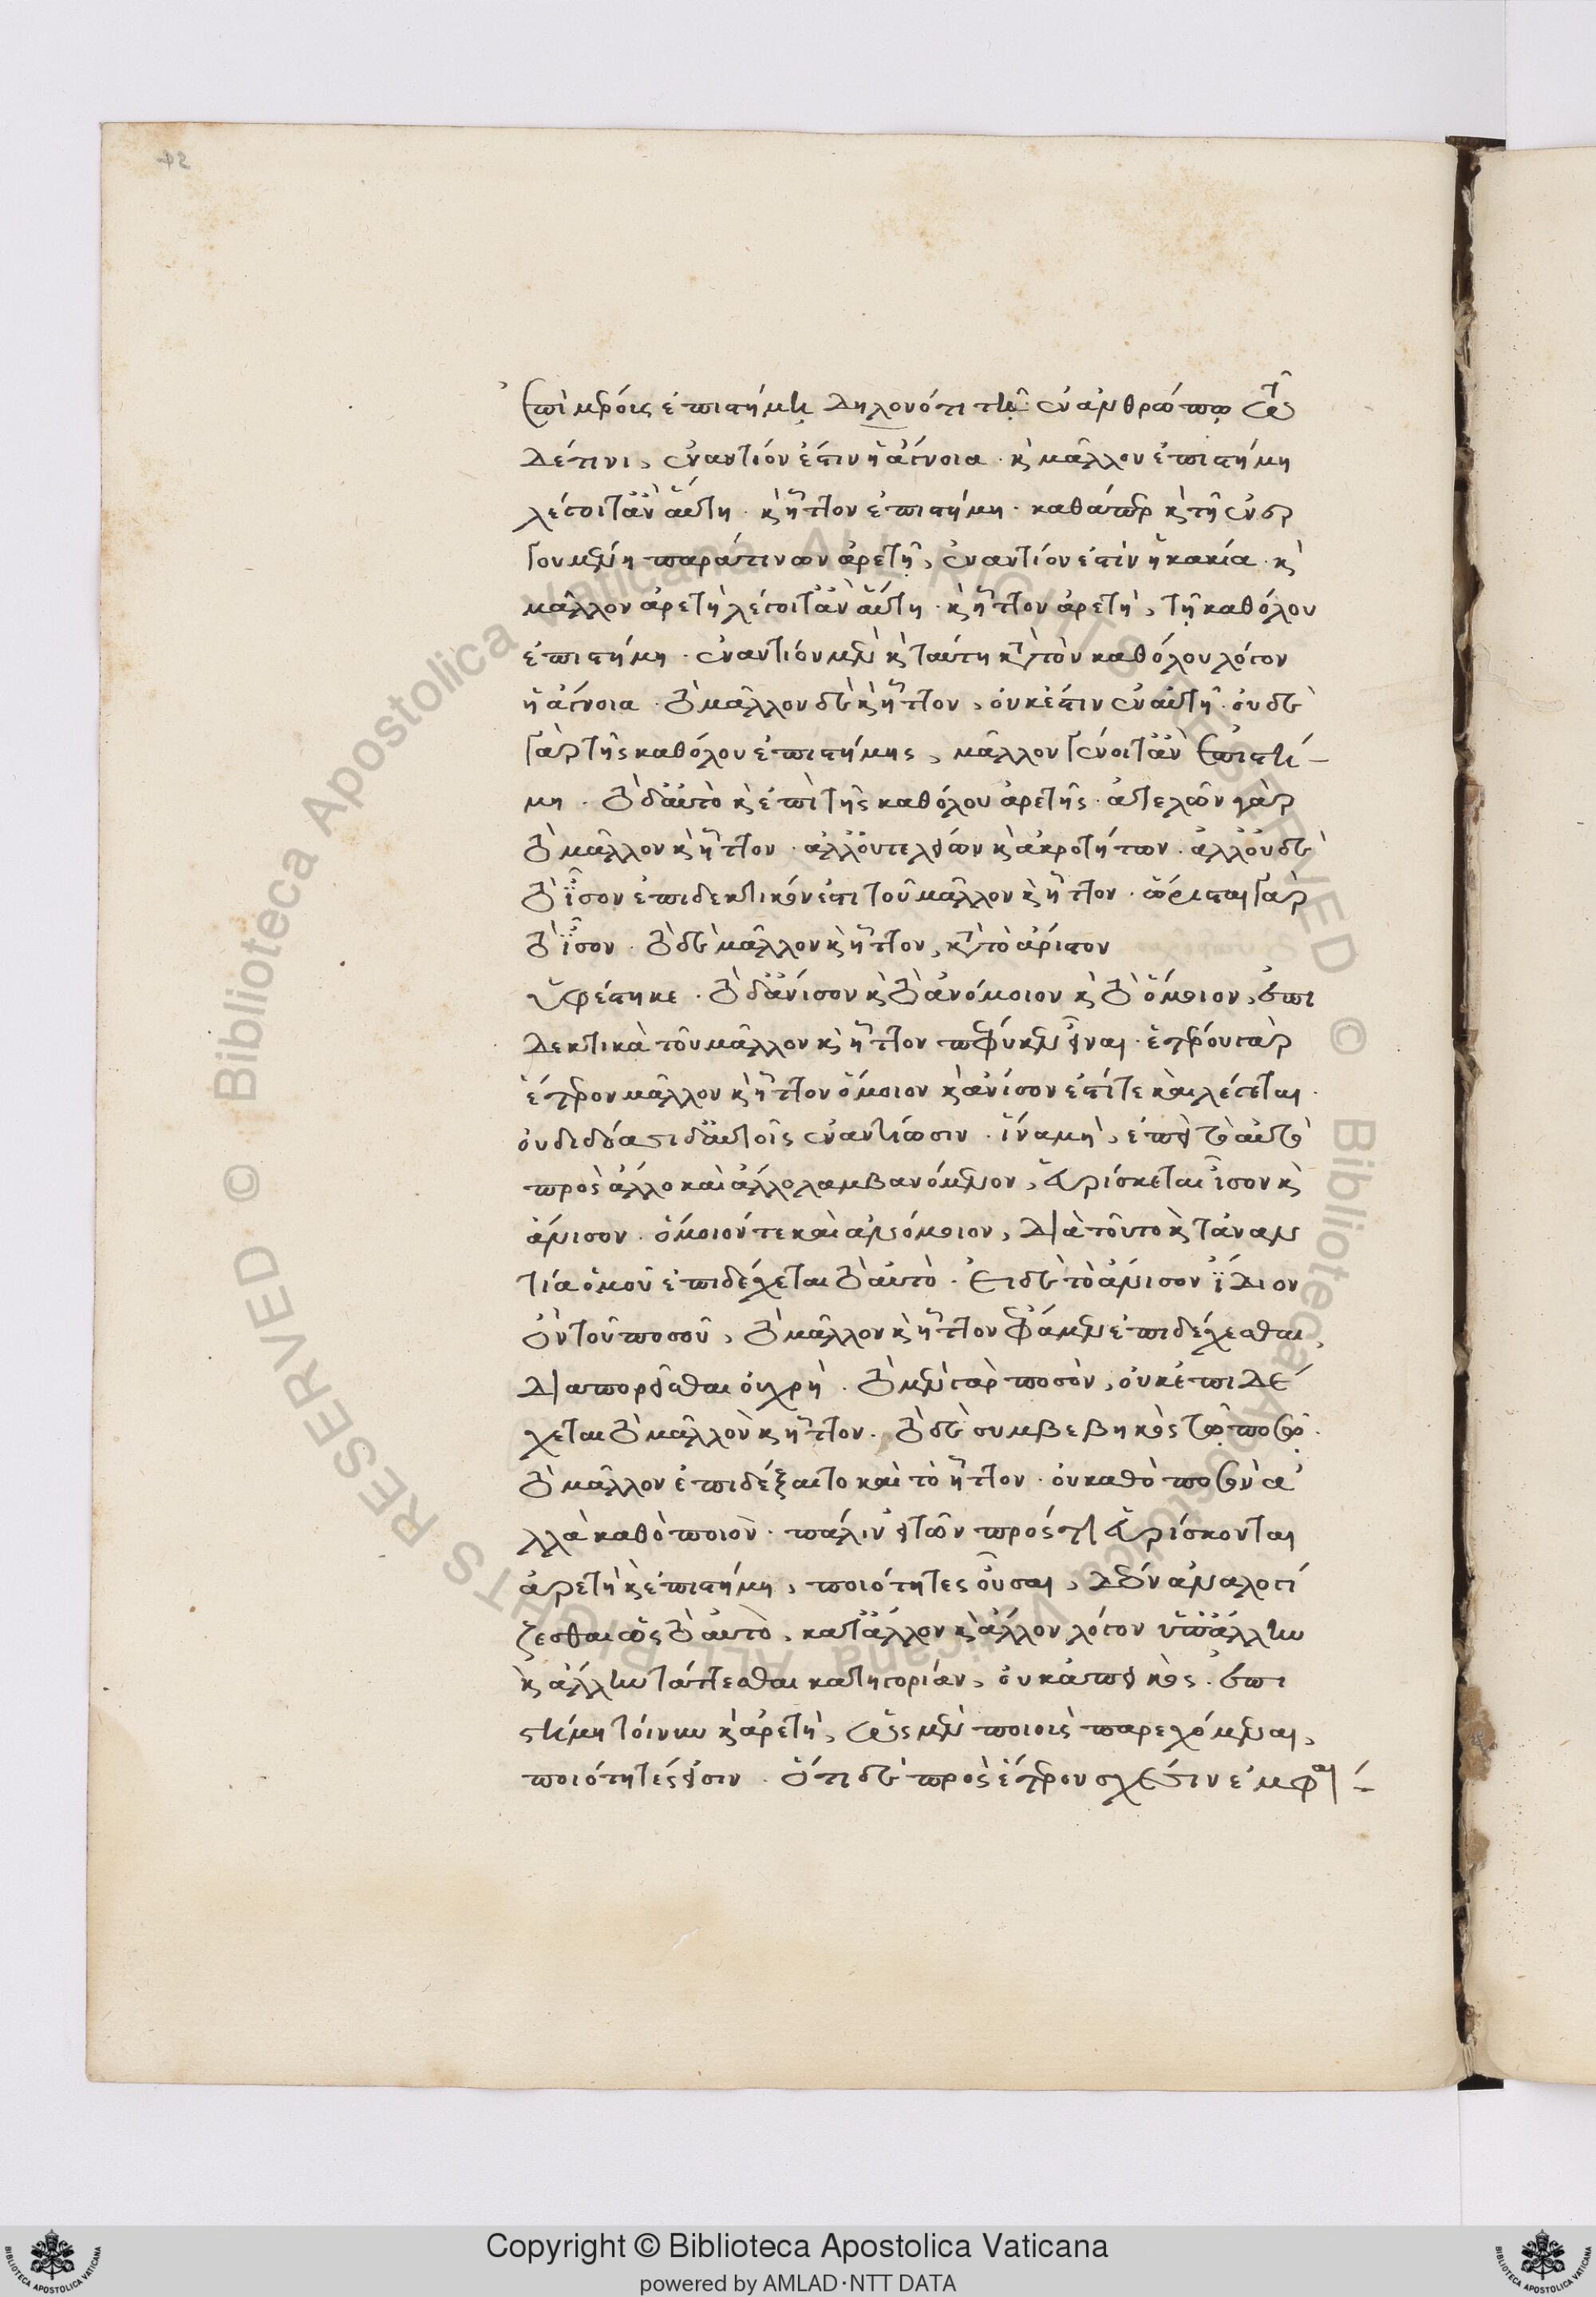 ἐπὶ μέρους ἐπιστήμη δηλονότι τῇ ἐν ἀνθρώπῳ
δέ τινι, ἐναντίον ἐστὶν ἡ ἄγνοια. καὶ μᾶλλον ἐπιστήμη
λέγοιτ' ἂν αὕτη. καὶ ἧττον ἐπιστήμη. καθάπερ καὶ τῇ ἐνερ
γουμένῃ παρά τινων ἀρετῇ, ἐναντίον ἐστὶν ἡ κακία. καὶ
μᾶλλον ἀρετὴ λέγοιτ' ἂν αὕτη. καὶ ἧττον ἀρετὴ, τῇ καθόλου
ἐπιστήμη. ἐναντίον μὲν καὶ ταύτη κατὰ τὸν καθόλου λόγον
ἡ ἄγνοια. τὸ μᾶλλον δὲ καὶ ἧττον, οὐκ ἔστιν ἐν αὐτῇ. οὐδὲ
γὰρ τῆς καθόλου ἐπιστήμης, μᾶλλον γένοιτ' ἂν ἐπιστή-
μη. τὸ δ' αὐτὸ καὶ ἐπὶ τῆς καθόλου ἀρετῆς. ἀτελῶν γὰρ
τὸ μᾶλλον καὶ ἧττον. ἀλλ' οὐ τελείων καὶ ἀκροτήτων. ἀλλ' οὐδὲ
τὸ ἴσον ἐπιδεκτικόν ἐστι τοῦ μᾶλλον καὶ ἧττον. ὥρισται γὰρ
τὸ ἴσον. τὸ δὲ μᾶλλον καὶ ἧττον, κατὰ τὸ ἀόριστον
ὑφέστηκε. τὸ δ' ἄνισον καὶ τὸ ἀνόμοιον καὶ τὸ ὅμοιον, ἐπι
δεκτικὰ τοῦ μᾶλλον καὶ ἧττον πέφυκεν εἶναι. ἑτέρου γὰρ
ἕτερον μᾶλλον καὶ ἧττον ὅμοιον καὶ ἄνισον ἐστί τε καὶ λέγεται.
οὐ δίδωσι δ' αὐτοῖς ἐναντίωσιν. ἵνα μὴ, ἐπεὶ τὸ αὐτὸ
πρὸς ἄλλο καὶ ἄλλο λαμβανόμενον, εὑρίσκεται ἴσον καὶ
ἄνισον. ὅμοιόν τε καὶ ἀνόμοιον, διὰ τοῦτο καὶ τἀναν
τία ὁμοῦ ἐπιδέχεται τὸ αὐτό. ἔτι δὲ τὸ ἄνισον ἴδιον
ὂν τοῦ ποσοῦ, τὸ μᾶλλον καὶ ἧττον φάμεν ἐπιδέχεσθαι,
διαπορεῖσθαι οὐ χρή. τὸ μὲν γὰρ ποσὸν, οὐκ ἐπιδέ
χεται τὸ μᾶλλον καὶ ἧττον. τὸ δὲ συμβεβηκὸς τῷ ποσῷ.
τὸ μᾶλλον ἐπιδέξαιτο καὶ τὸ ἧττον. οὐ καθὸ ποσὸν ἀ
λλὰ καθὸ ποιόν. πάλιν εἰ τῶν πρός τι εὑρίσκονται
ἀρετὴ καὶ ἐπιστήμη, ποιότητες οὖσαι, οὐδὲν ἀναλογί
ζεσθαι ὡς τὸ αὐτὸ, κατ' ἄλλον καὶ ἄλλον λόγον ὑπ' ἄλλην
καὶ ἄλλην τάττεσθαι κατηγορίαν, οὐκ ἀπεικός. ἐπι
στήμη τοίνυν καὶ ἀρετὴ, ὡς μὲν ποιοὺς παρεχόμεναι,
ποιότητές εἰσιν. ὅτι δὲ πρὸς ἕτερον σχέσιν ἐμφαί-